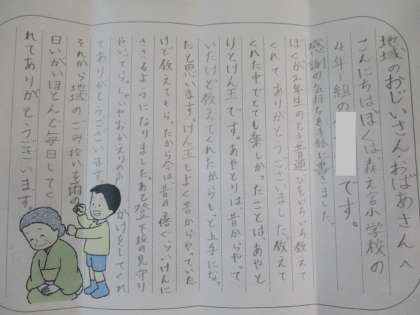 地域のおじいさん、おばあさんへ
こんにちは。ぼくは、森る小学校の
4年 組の です。
感謝の気持ちを手紙に書きました。
ぼくが2年生のとき昔遊びをいろいろ教えて
くれてありがとうございました。教えて
くれた中でとても楽しかったことは、あやと
りとけん玉です。あやとりは昔からやって
いたけど教えてくれたからもっと上手にな
たと思います。けん玉もよく昔からやっていた
けど教えてもらったから今は昔の倍ぐらいけんに
ささるようになりました。あと登下校の見守り
やいってらっしゃいやおかえりの かけをしてくれ
てありがとうございます。
それから地域のごみ拾いを雨の
日いがいほとんど毎日してく
れてありがとうございます。